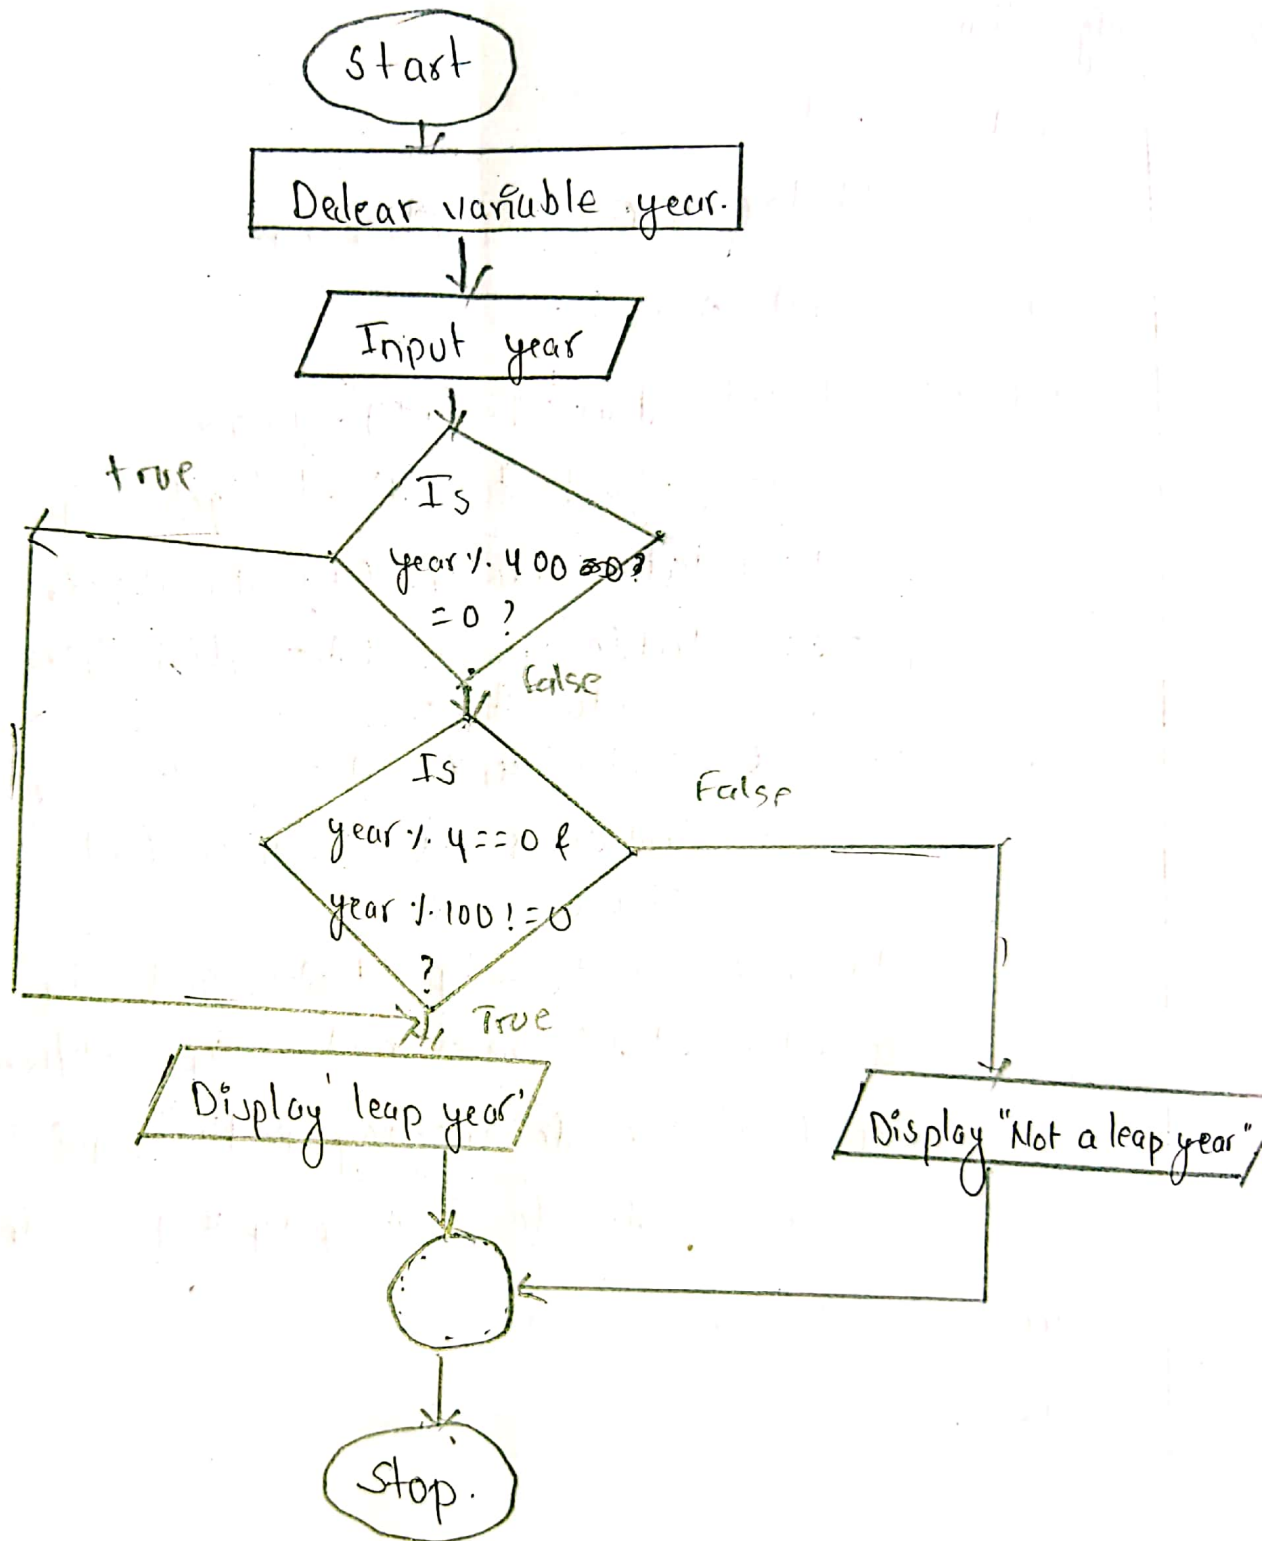 Start
Delear variable year.
Input year
true
Is
year % 400
= 0 ?
false
Is
False
year % 4 == 0 &
year % 100 ! = 0
?
True
Display 'leap year'
Display "Not a leap year"
Stop.